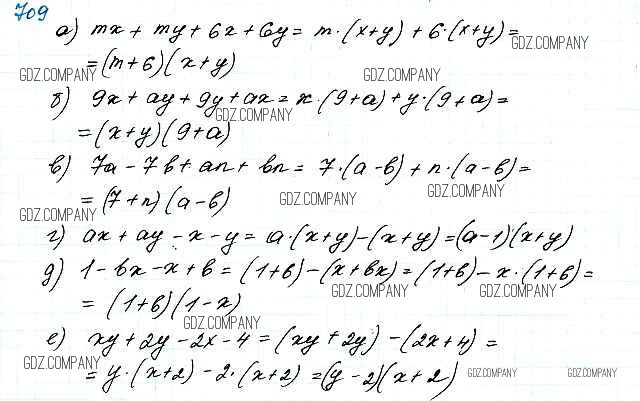 709
а) mx + my + 6x + 6y = m·(x+y) + 6·(x+y) =
GDZ.COMPANY
= (m+6)(x+y)
GDZ.COMPANY GDZ.COMPANY
б) 9x + ay + 9y + ax = x·(9+a) + y·(9+a) =
GDZ.COMPANY
= (x+y)(9+a)
в) 7a - 7b + an + bn = 7·(a-b) + n·(a-b) =
GDZ.COMPANY
= (7+n)(a-b)
GDZ.COMPANY GDZ.COMPANY
г) ax + ay - x - y = a·(x+y) - (x+y) = (a-1)(x+y)
д) 1 - bx - x + b = (1+b) - (x+bx) = (1+b) - x·(1+b) =
GDZ.COMPANY GDZ.COMPANY
= (1+b)(1-x)
GDZ.COMPANY
е) xy + 2y - 2x - 4 = (xy + 2y) - (2x+4) =
GDZ.COMPANY
= y·(x+2) - 2·(x+2) = (y-2)(x+2)
GDZ.COMPANY GDZ.COMPANY